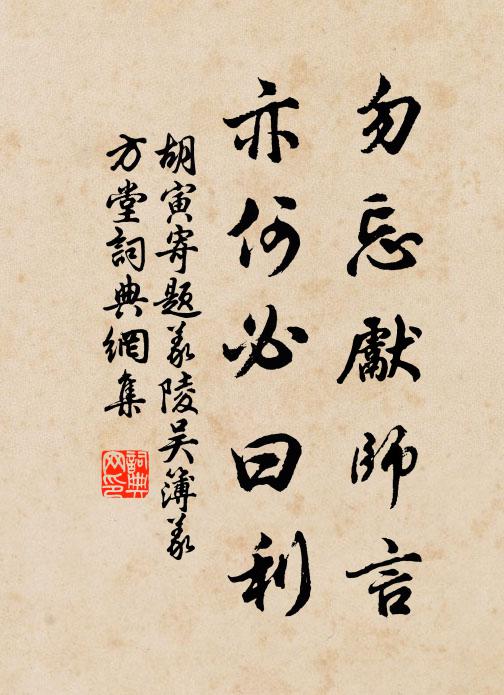 勿忘獻師言
亦何必曰利
胡寅寄題義陵吴簿義
方堂詞典網集
詞典网印